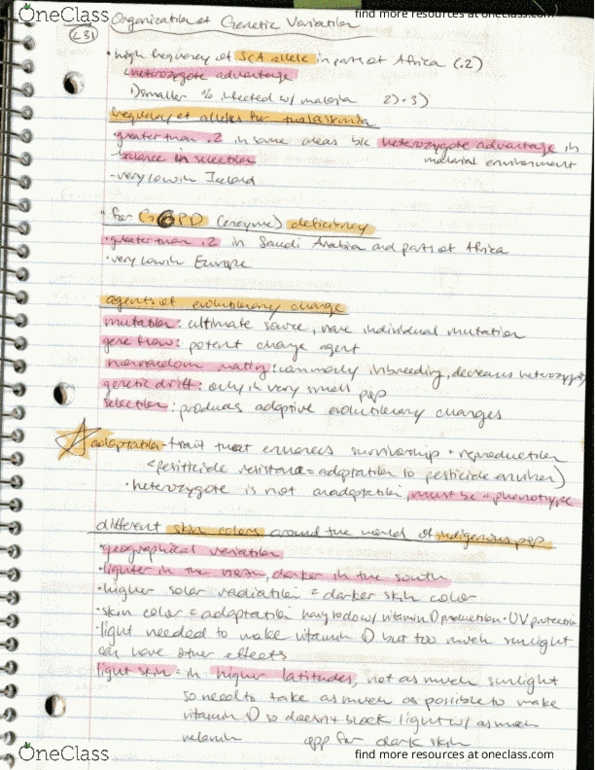 OneClass
find more resources at oneclass.com
L31
Organization of Genetic Variation
• high frequency of SCA allele in parts of Africa (.2)
heterozygote advantage
1) smaller % infected w/ malaria 2) .3)
frequency of alleles for thalassemia
• greater than .2 in some areas b/c heterozygote advantage in
- balance in selection
malarial environment
- very low in Iceland
• for G6PD (enzyme) deficiency
• greater than .2 in Saudi Arabia and parts of Africa
• very low in Europe
agents of evolutionary change
mutation: ultimate source, rare individual mutation
gene flow: potent change agent
nonrandom mating: commonly inbreeding, decreases heterozygosity
genetic drift: only in very small pop
selection: produces adaptive evolutionary changes
adaptation - trait that enhances survivorship + reproduction
<pesticide resistance = adaptation to pesticide environ)
• heterozygote is not an adaptation, must be a phenotype
different skin colors around the world of indigenous pop
• geographical variation
• lighter in the north, darker in the south
• higher solar radiation = darker skin color
• skin color = adaptation having to do w/ vitamin D production + UV protection
• light needed to make vitamin D but too much sunlight
can have other effects
light skin = in higher latitudes, not as much sunlight
so need to take as much as possible to make
vitamin D so doesn't block light w/ as much
melanin opp for dark skin
OneClass
find more resources at oneclass.com